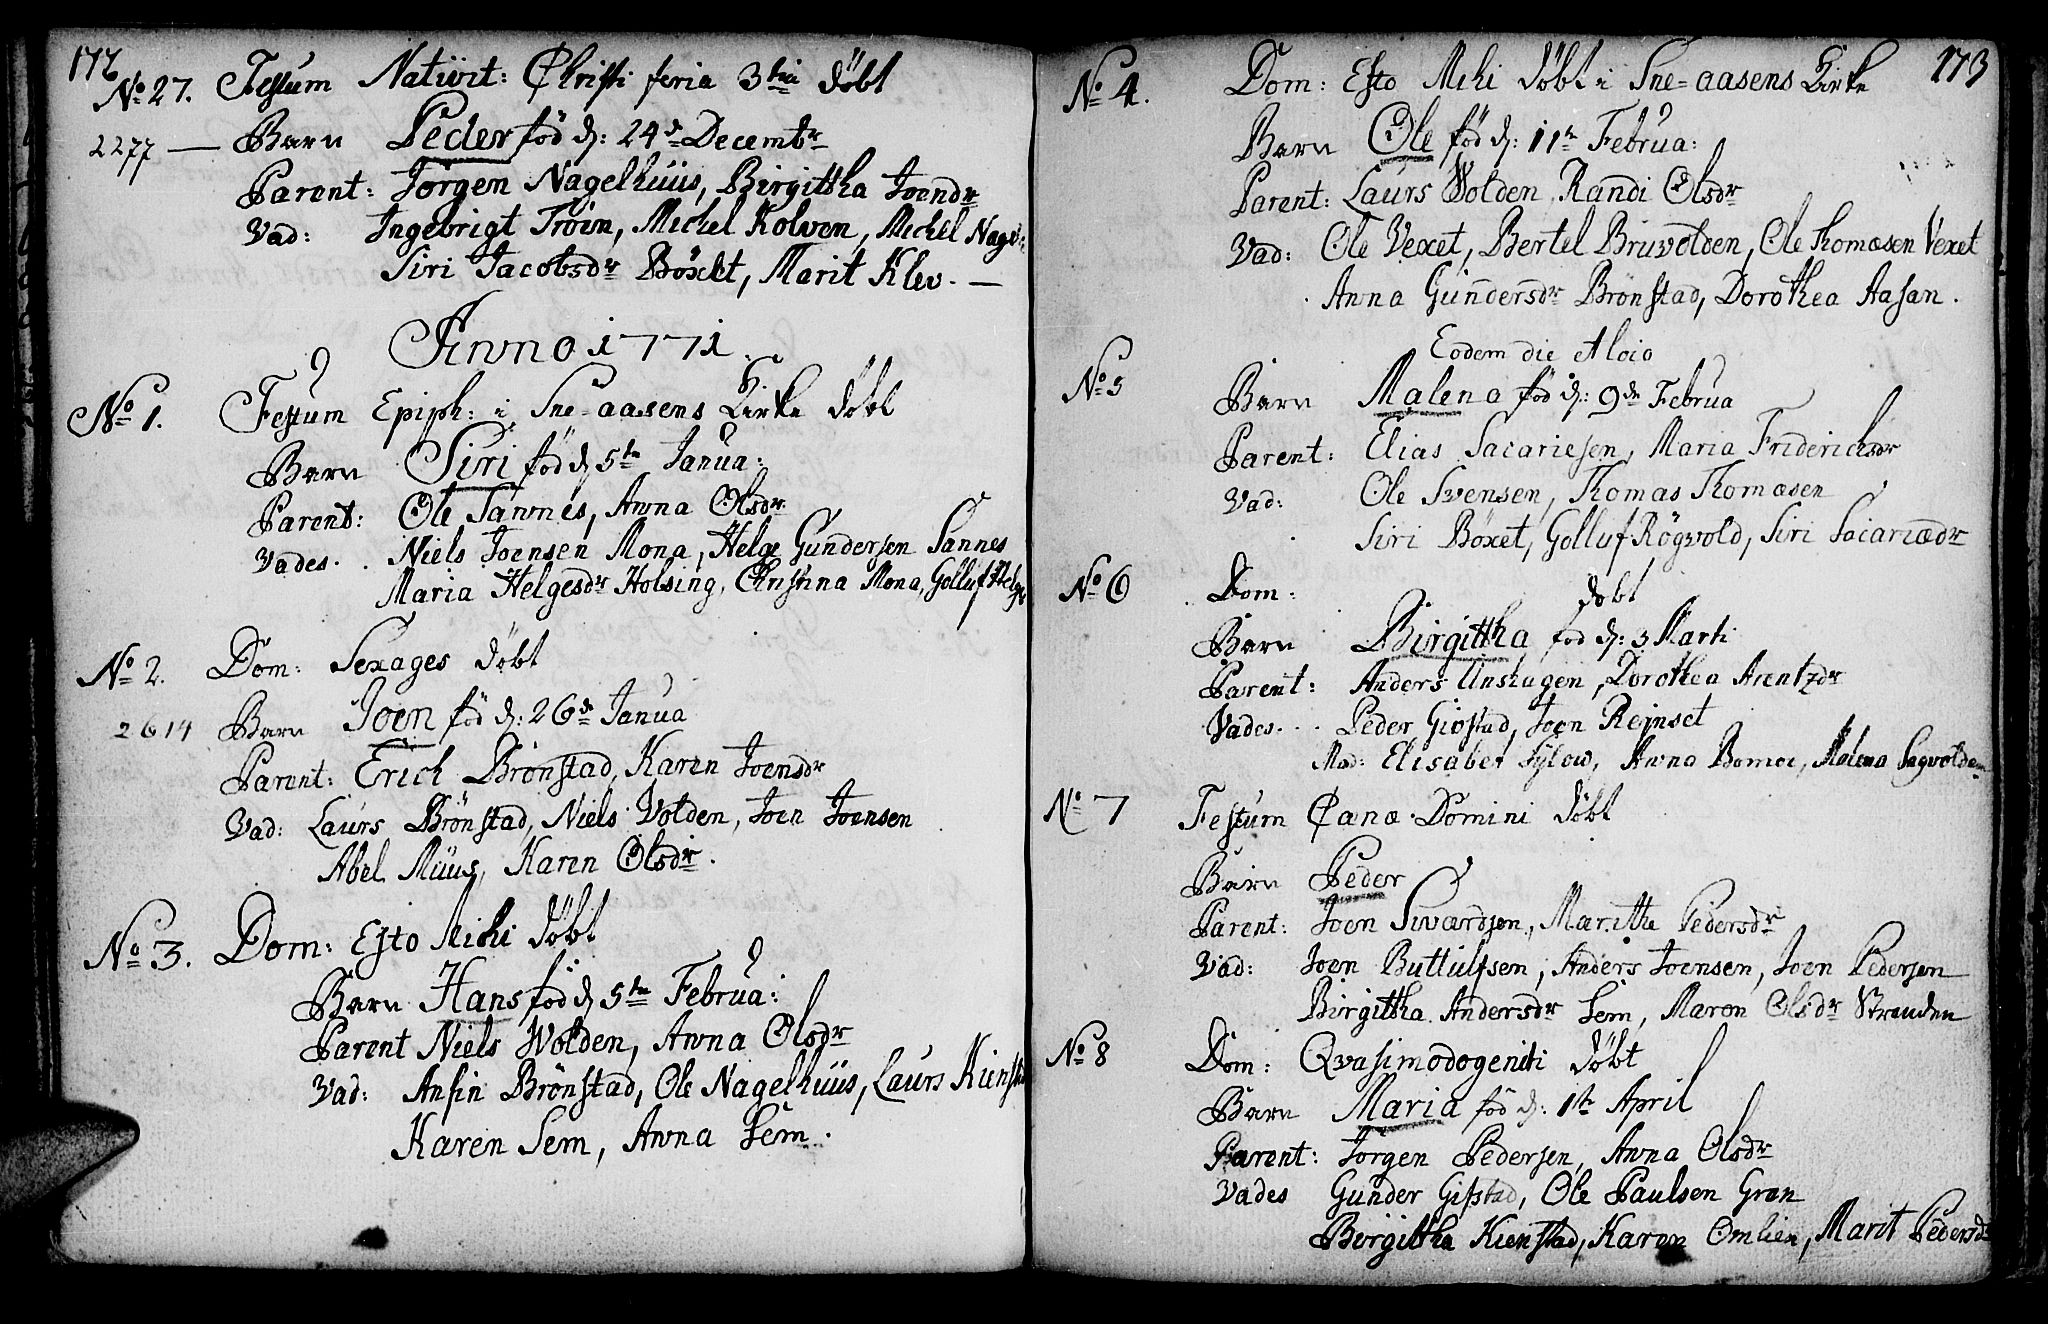 172
No 27. Festum Nativit: Christi feria 3tia døbt
2277 — Barn Peder fød d: 24de Decembr
Parent: Jørgen Nagelhuus, Birgittha Joensdr
Vad: Ingebrigt Trøen, Michel Kolven, Michel Nagel:
Siri Jacobsdr Böxet, Marit Klev. —
Anno 1771.
No 1. Festum Epiph: i Sne-aasens Kirke døbt
Barn Siri fød d 5te Janua:
Parent: Ole Sannes, Anna Olsdr
Vades. Niels Joensen Mona, Helge Gundersen Sannes
Maria Helgesdr Holsing, Christina Mona, Golluf Helges
No 2. Dom: Sexages døbt
2614 Barn Joen fød d: 26de Janua
Parent: Erich Brönstad, Karen Joensdr
Vad: Laurs Brönstad, Niels Volden, Joen Joensen
Abel Müüs, Karen Olsdr.
No 3. Dom: Esto Michi døbt
Barn Hans fød d 5te Februa:
Parent Niels Wolden, Anna Olsdr
Vad: Ansin Brönstad, Ole Nagelhüüs, Laurs Kienstad
Karen Sem, Anna Sem.
173
No 4. Dom: Esto Mihi døbt i Sne-aasens Kirke
Barn Ole fød d: 11te Februa:
Parent: Laurs Wolden Randi Olsdr
Vad: Ole Vexet, Bertel Bruvolden, Ole Thomæsen Vexet
Anna Gundersdr Brönstad, Dorothea Aasan.
Eodem die et loco
No 5 Barn Malena fød d: 9de Februa
Parent: Elias Sacariesen, Maria Friderichsdr
Vad: Ole Svensen, Thomas Thomæsen
Siri Böxet, Golluf Rögvold, Siri Sacariædr
No 6 Dom: døbt
Barn Birgittha fød d: 3 Marti
Parent: Anders Unshagen, Dorothea Arentzdr
Vades. Peder Giestad, Joen Rejnset
Mad: Elisabet Sylow, Anna Bomoe, Malena Sagvolden
No 7 Festum Cænæ Domini døbt
Barn Peder
Parent: Joen Siwardsen, Maritha Pedersdr
Vad: Joen Buttulfsen, Anders Joensen, Joen Pedersen
Birgittha Andersdr Sem, Maren Olsdr Stranden
No 8 Dom: Qvasimodogeniti døbt
Barn Maria fød d: 1te April
Parent: Jørgen Pedersen, Anna Olsdr
Vades Gunder Gifstad, Ole Paulsen Gran
Birgittha Kienstad, Karen Omlien, Marit Pedersdr